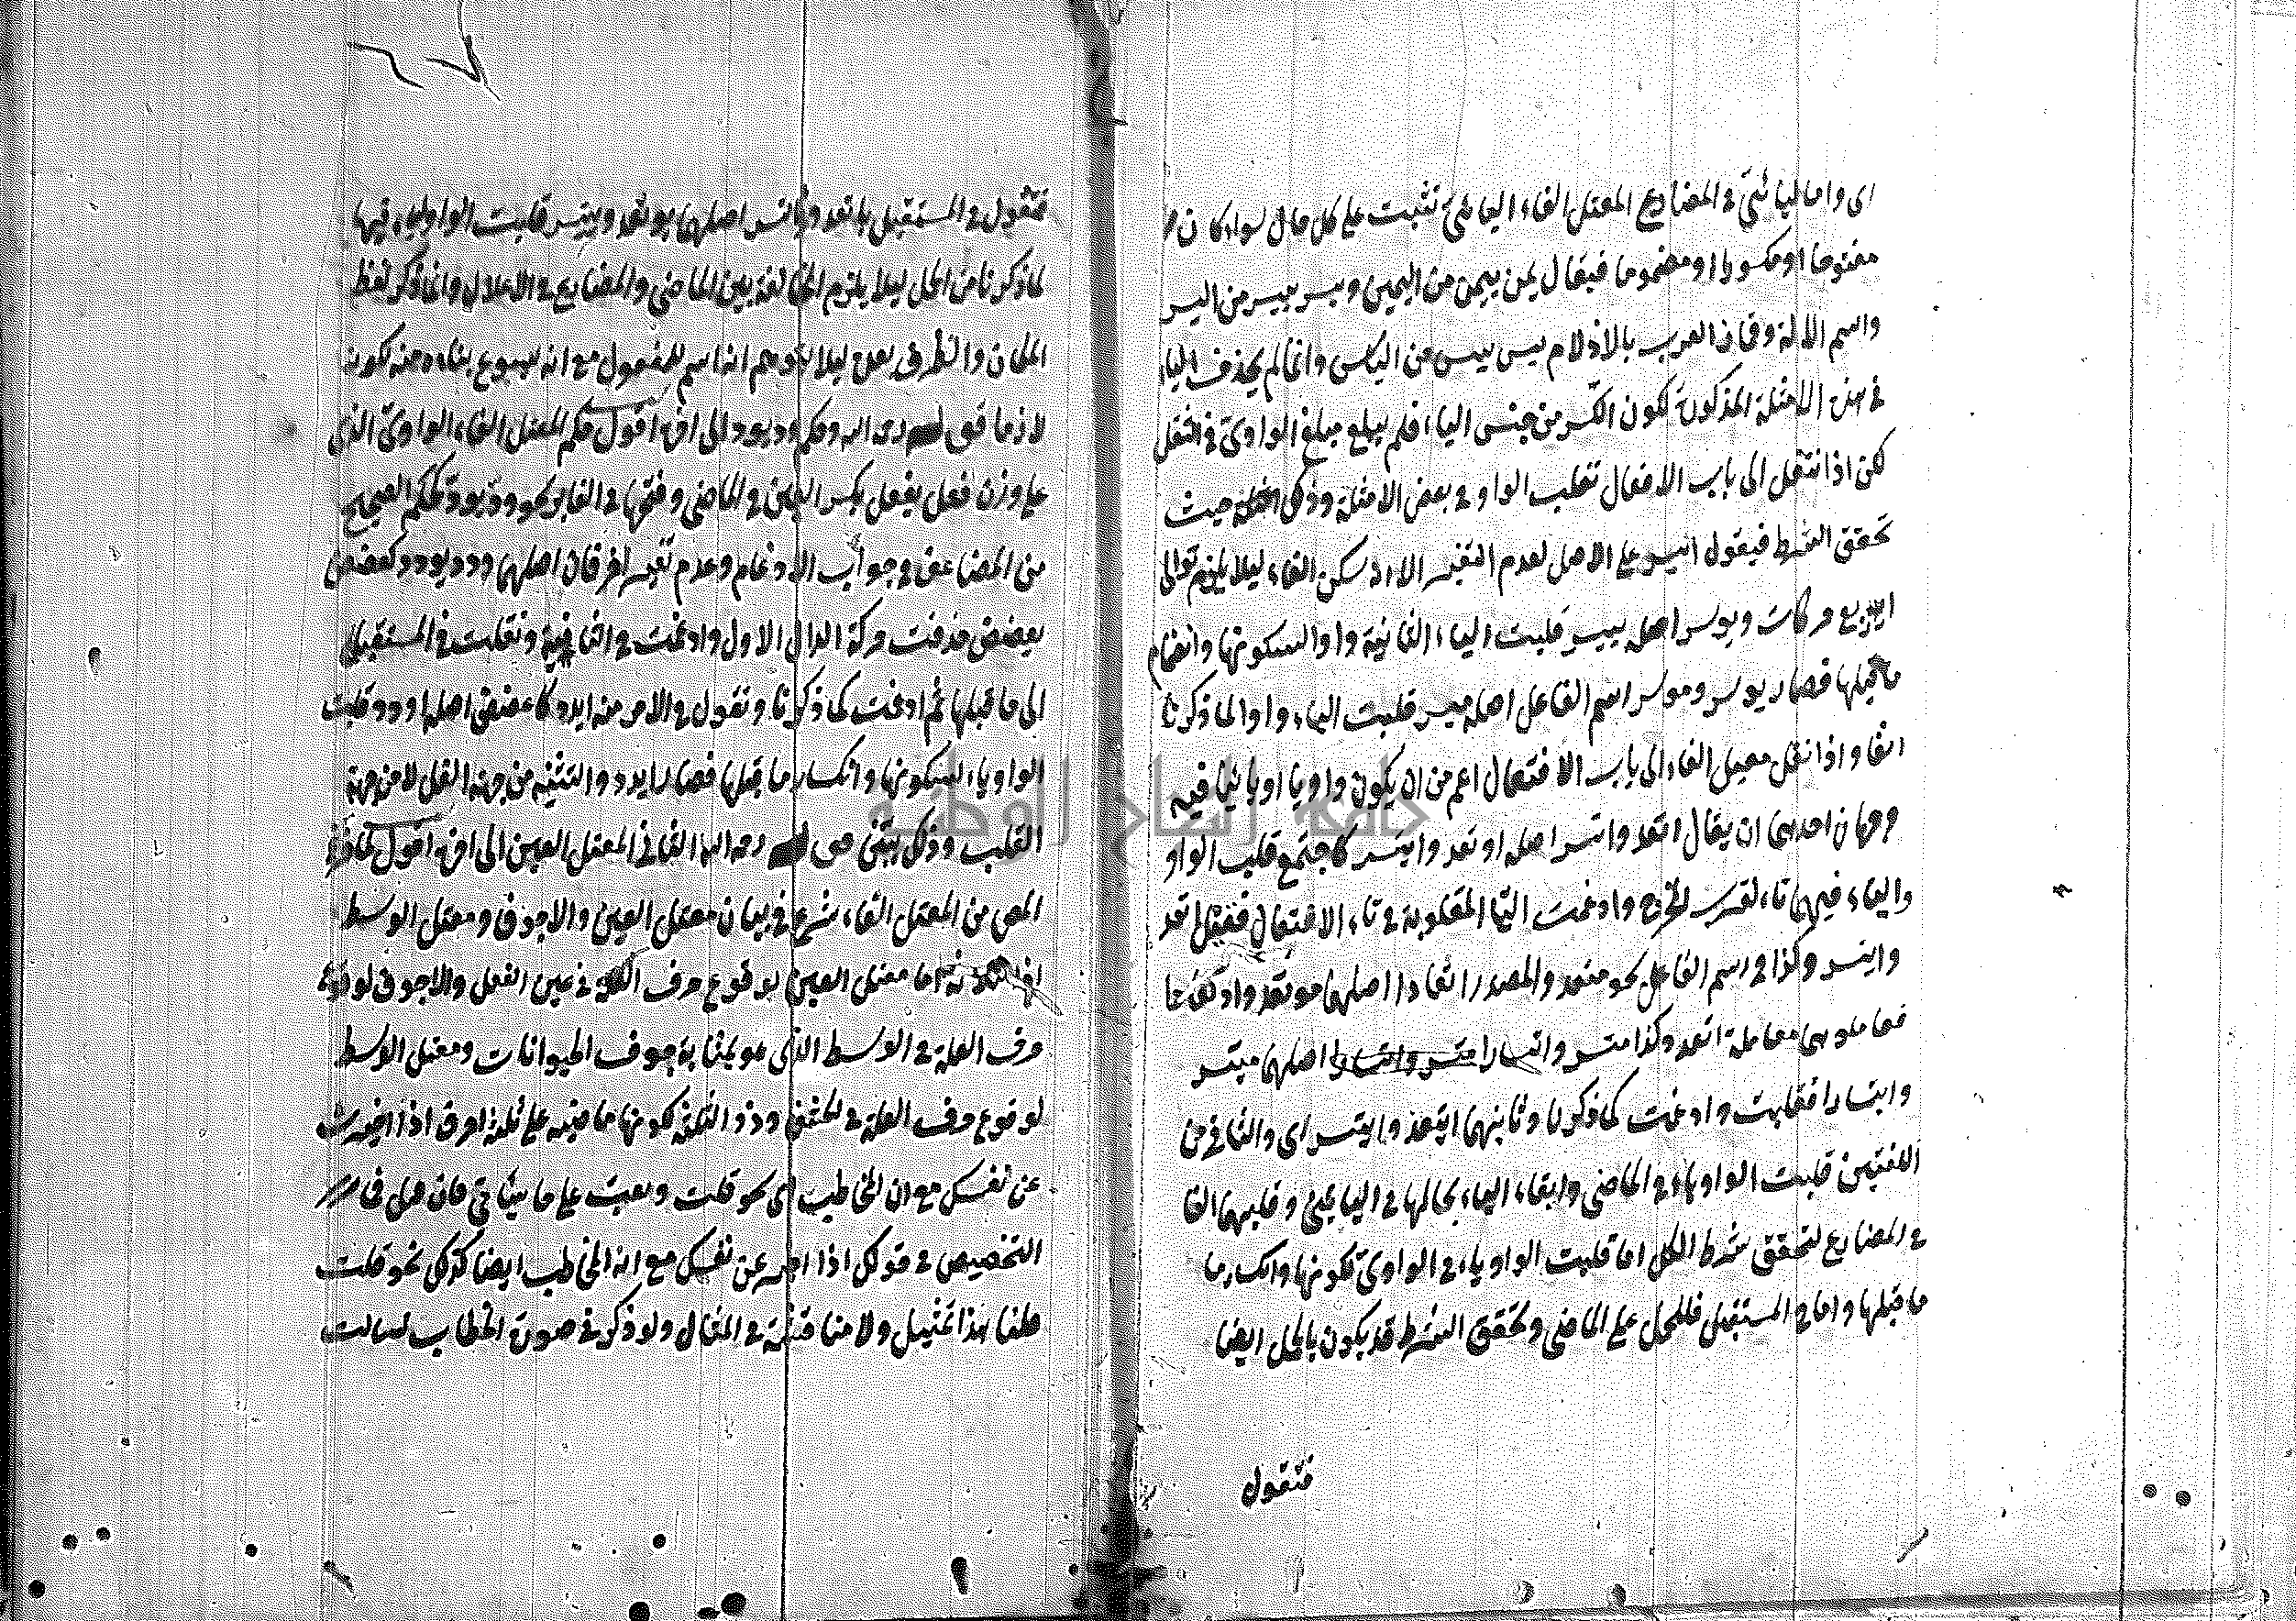 اى واما اليائى فى المضارع المعتل الفاء اليائى تثبت على كل حال سواء كان
مفتوحا او مكسورا او مضموما فيقال يمن ييمن من اليمين ويسر ييسر من اليسر
واسم الالة العرب بالاذلام يبس ييبس من اليابس وانما لم يحذف الياء
فى هذه الامثلة المذكورة لكون الكسر من جنس الياء فلم يبلغ مبلغ الواوى فى الثقل
لكن اذا نتقل الى باب الافعال تقلب الواو فى بعض الامثلة وذلك حيث
تحقق الشرط فيقول ايسر على الاصل لعدم التغير الا انه سكن الفاء ليلا يلزم توالى
اربع حركات ويوسر اصله ييسر قلبت الياء الثانية واوا لسكونها وانضمام
ما قبلها فصار يوسر وموسر اسم الفاعل اصله ميسر قلبت الياء واوا لما ذكرنا
انفا واذا نقل معتل الفاء الى باب الافتعال اعم من ان يكون واويا او يائيا فيه
وجهان احدهما ان يقال اتعد واتسر اصله اوتعد وايتسر كاجتمع قلبت الواو
والياء فيهما تاء لقرب المخرج وادغمت التاء المقلوبة فى تاء الافتعال فقيل اتعد
واتسر وكذا فى اسم الفاعل نحو متعد والمصدر اتعادا اصلهما موتعد واوتعادا
فعاملوهما معاملة اتعد وكذا متسر واتسارا اصلهما ميتسر
وايتسارا فقلبت وادغمت كما ذكرنا وثانيهما ايتعد وايتسر اى والثانى من
اللغتين قلبت الواو ياء فى الماضى وابقاء الياء بحالها فى اليائى وقلبهما الفا
فى المضارع لتحقق شرط الكل اما قلبت الواو ياء فى الواوى لسكونها وانكسار ما
ما قبلها واما فى المستقبل فللحمل على الماضى وتحقق الشرط قد يكون بالحمل ايضا
فتقول
فتقول فى المستقبل ياتعد وياتسر اصلهما يوتعد وييتسر قلبت الواو والياء فيهما
لما ذكرنا من الحمل ليلا يلزم المخالفة بين الماضى والمضارع فى الاعلال وانما ذكر لفظ
المكان والظرف بعده ليلا يتوهم انه اسم للمفعول مع انه ليسوع بناءه منه لكونه
لازما قوله رحمه الله وحكم ود يود الى اخره اقول حكم المعتل الفاء الواوى الذى
على وزن فعل يفعل بكسر العين فى الماضى وفتحها فى الغابر نحو ود يود كحكم الصحيح
من المضاعف فى وجوب الادغام وعدم تغير اخر فان اصلهما ودد يودد كعضض
يعضض حذفت حركة الدال الاول وادغمت فى الثانية ونقلت فى المستقبل
الى ما قبلها ثم ادغمت كما ذكرنا وتقول فى الامر منه ايدد كاعضض اصله اودد قلبت
الواو ياء لسكونها وانكسار ما قبلها فصار ايدد والتثنية من جهة النقل لا من جهة
القلب وذلك رحمه الله الثانى المعتل العين الى اخره اقول لما فرغ
المص من المعتل الفاء شرع فى بيان معتل العين والاجوف ومعتل الوسط
اما معتل العين لوقوع حرف العلة فى عين الفعل والاجوف لوقوع
حرف العلة فى الوسط الذى هو بمثابة جوف الحيوانات ومعتل الوسط
لوقوع حرف العلة فى وذو الثلثة لكونها ماضيه على ثلثة احرف اذا اخبرت
عن نفسك مع ان المخاطب نحو قلت وبعت على ما سياتى فان
التخصيص فى قولك اذا اخبر عن نفسك مع ان المخاطب ايضا كذلك نحو قلت
قلنا هذا تمثيل ولا مناقشة فى المثال ولو ذكر فى صورة الخطاب لسالت
جامعة النجاح الوطنية